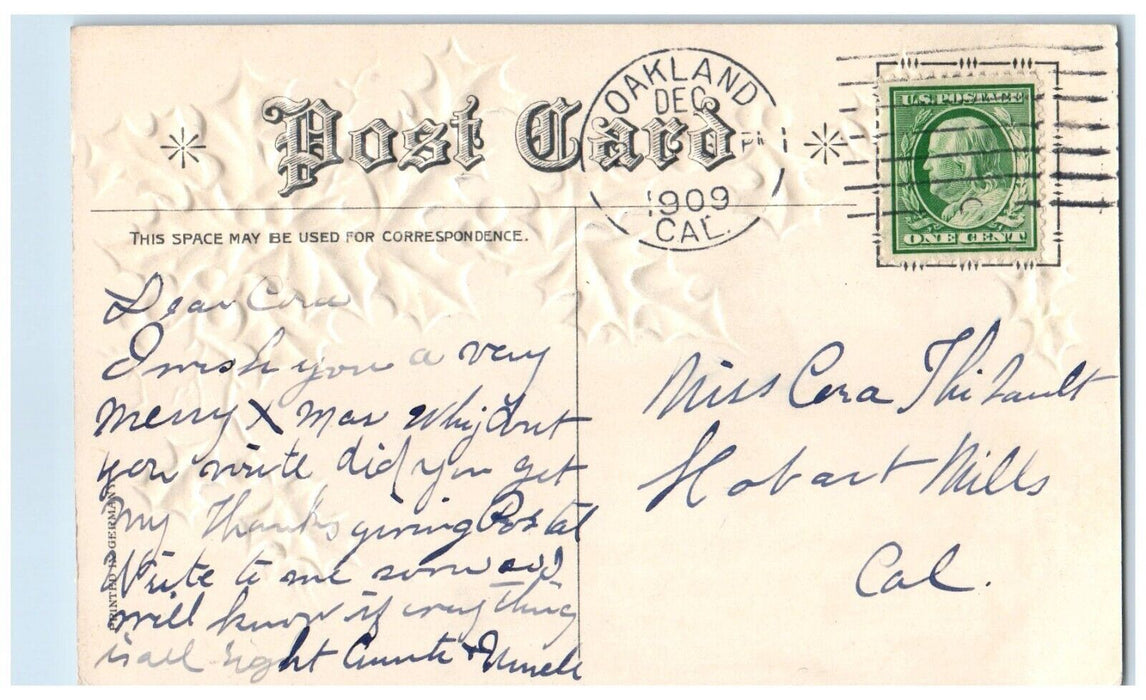 Post Card
OAKLAND
DEC
1909
CAL.
U.S. POSTAGE
ONE CENT
THIS SPACE MAY BE USED FOR CORRESPONDENCE.
Dear Cora
I wish you a very
Merry X mas Why dont
you write did you get
My Thanks giving Postal
Write to me soon so I
will know if every thing
is all right Aunt + Uncle
PRINTED IN GERMANY
Miss Cora Thibault
Hobart Mills
Cal.